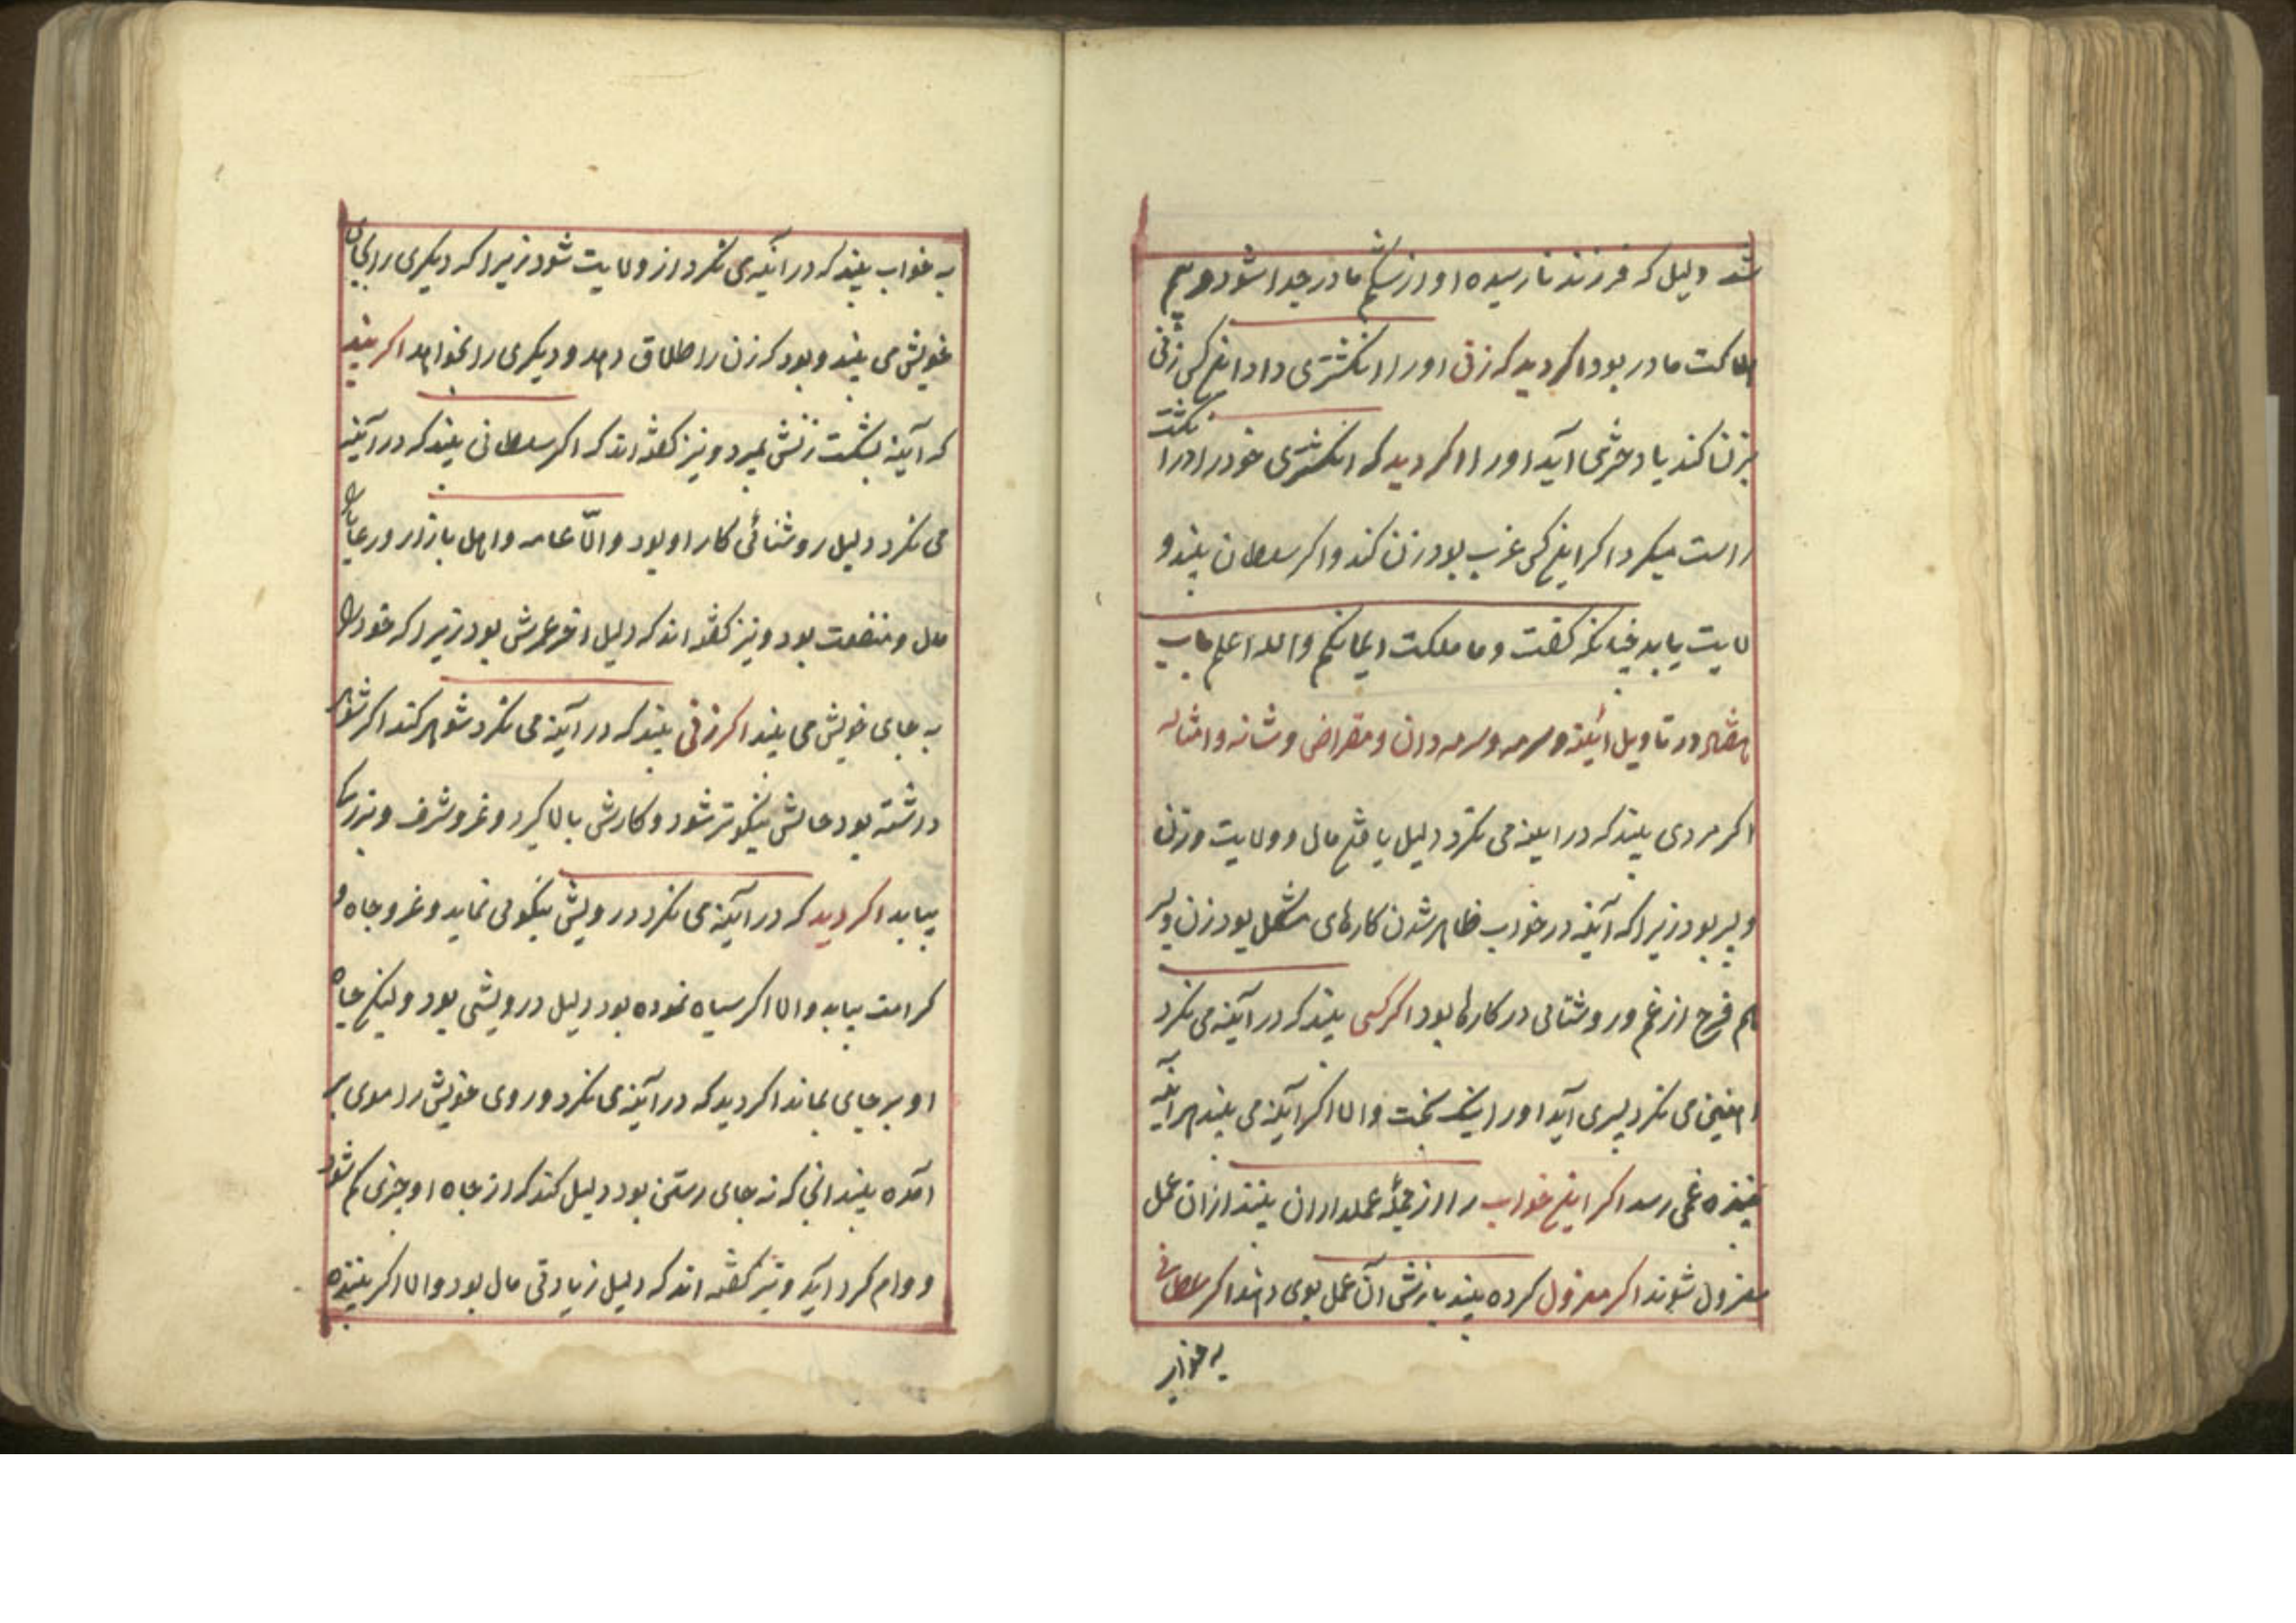 شد دلیل که فرزند نارسیده او از شکم مادر جدا شود و بیم
هلاکت مادر بود اکر دید که زن او را انکشتری داد اینکس زنی
بزنا کند یا دختری آید او را اکر دید که انکشتری خود را در انکشت
راست میکرد اکر اینکس عزب بود زن کند و اکر سلطان بیند و
لایت یابد چنانکه کفت و ما ملکت ایمانکم والله اعلم باب
در تاویل آیینه و سرمه و سرمه دان و مقراض و شانه و امثاله
اکر مردی بیند که در آیینه می نکرد دلیل یافتن مال و ولایت و زن
و پسر بود زیرا که آینه در خواب ظاهر شدن کارهای مشکل بود زن و پسر
هم فرح از غم و روشنائی در کارها بود اکر کسی بیند که در آینه می نکرد
می نکرد پسری آید او را نیک بخت والا اکر آینه می بیند هر آینه
بیننده غمی رسد اکر این خواب را از جمله عملداران بینند از ان عمل
معزول شوند اکر معزول کرده بیند بازش آن عمل بوی دهند اکر سلطانی
به خواب
به خواب بیند که در آینه می نکرد از ولایت شود زیرا که دیکری را بجای
خویش می بیند و بود که زن را طلاق دهد و دیکری را بخواهد اکر بیند
که آینه بشکست زنش بمیرد و نیز کفته اند که اکر سلطانی بیند که در آینه
می نکرد دلیل روشنائی کار او بود والّا عامه و اهل بازار و رعایا را
مال و منفعت بود و نیز کفته اند که دلیل آخر عمرش بود زیرا که خود را
به جای خویش می بیند اکر زنی بیند که در آینه می نکرد شوهر کند اکر شوهر
داشته بود حالش نیکوتر شود و کارش بالا کیرد و عز و شرف و بزرکی
بیابد اکر دید که در آینه می نکرد و رویش نیکو می نماید و عز و جاه و
کرامت بیابد والا اکر سیاه نموده بود دلیل درویشی بود ولیکن جاه
او بر جای بماند اکر دید که در آینه می نکرد و روی خویش را موی بر
آمده بیند انی که نه جای رستن بود دلیل کند که از جاه او چیزی کم شود
و وام کرد آید و نیز کفته اند که دلیل زیادتی مال بود والا اکر بیننده